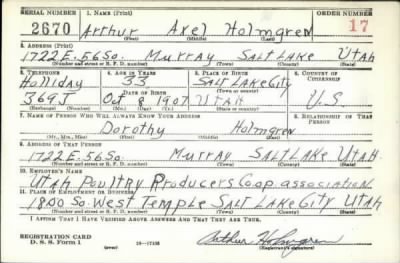 SERIAL NUMBER 1. NAME (Print) ORDER NUMBER
2670 Arthur Axel Holmgren 17
(First) (Middle) (Last)
2. ADDRESS (Print)
1722 E. 56 So. Murray Salt Lake Utah
(Number and street or R. F. D. number) (Town) (County) (State)
3. TELEPHONE 4. AGE IN YEARS 5. PLACE OF BIRTH 6. COUNTRY OF CITIZENSHIP
Holliday 33 Salt Lake City
DATE OF BIRTH (Town or county)
369J Oct 8 1907 Utah U.S.
(Mo.) (Day) (Yr.) (State or country)
7. NAME OF PERSON WHO WILL ALWAYS KNOW YOUR ADDRESS 8. RELATIONSHIP OF THAT PERSON
Dorothy Holmgren
(Mr., Mrs., Miss) (First) (Middle) (Last)
9. ADDRESS OF THAT PERSON
1722 E. 56 So. Murray Salt Lake Utah
(Number and street or R. F. D. number) (Town) (County) (State)
10. EMPLOYER'S NAME
Utah Poultry Producers Coop. association
11. PLACE OF EMPLOYMENT OR BUSINESS
1800 So. West Temple Salt Lake City Utah
(Number and street or R. F. D. number) (Town) (County) (State)
I AFFIRM THAT I HAVE VERIFIED ABOVE ANSWERS AND THAT THEY ARE TRUE.
REGISTRATION CARD Arthur Holmgren
D. S. S. Form 1 (over) (Registrant's signature)